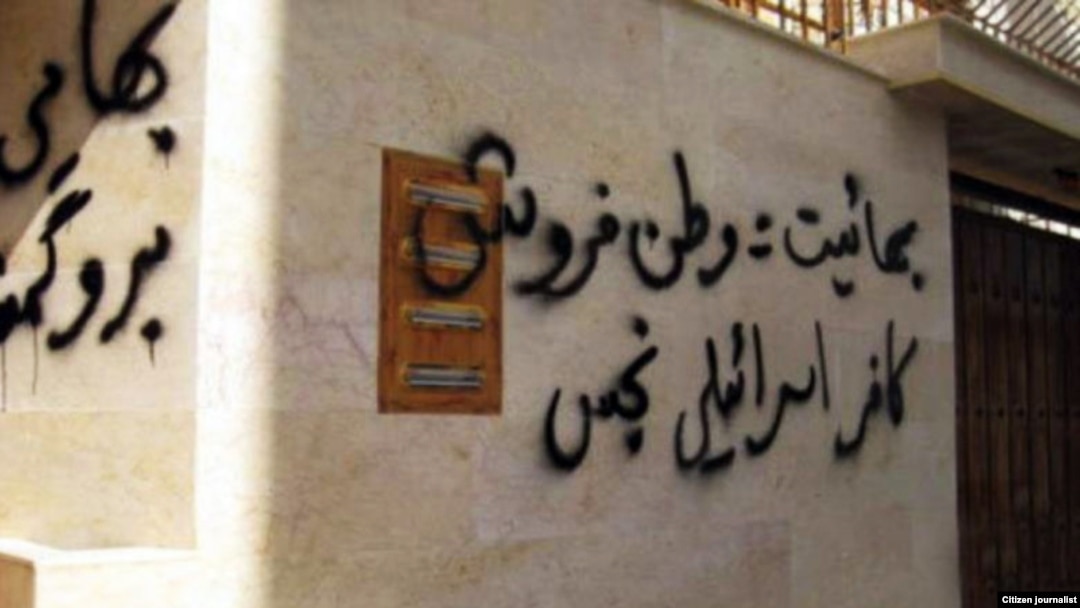 بهائیت : وطن فروش
کافر اسرائیلی نجس
بهایی
برو گمشو
Citizen journalist